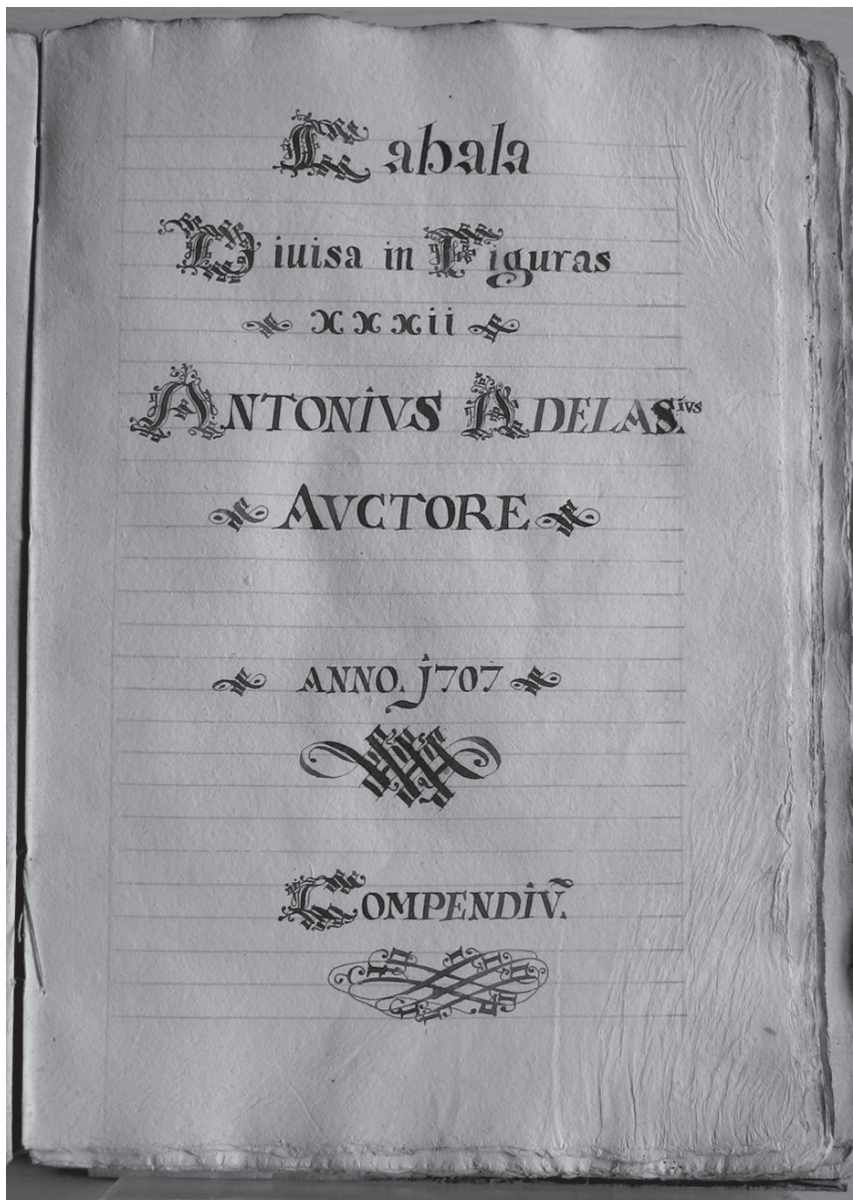 Cabala
Diuisa in Figuras
xxxii
ANTONIVS ADELAS.ivs
AVCTORE
ANNO. j707
COMPENDIṼ.